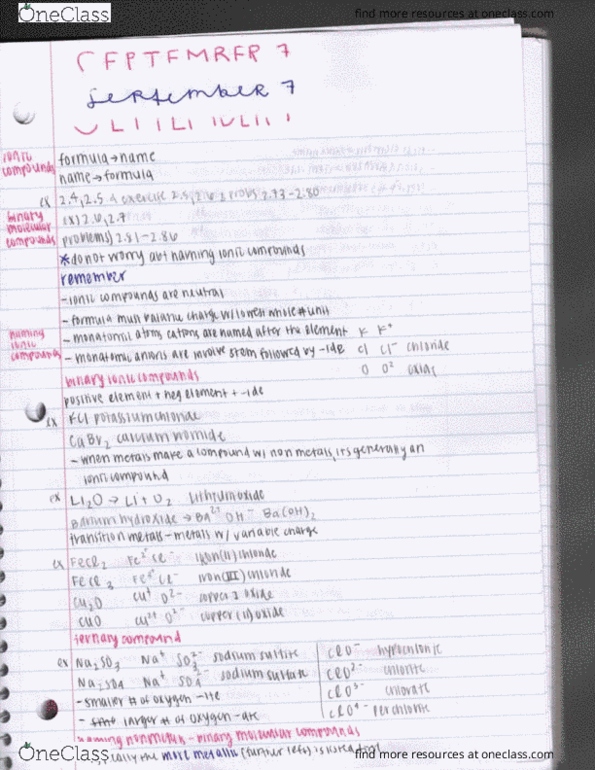 OneClass
find more resources at oneclass.com
SEPTEMBER 7
September 7
ionic compounds
formula → name
name → formula
ex 2.4, 2.5 exercise 2.5, 2.6 probs 2.73-2.80
binary molecular compounds
ex) 2.6, 2.7
problems) 2.81-2.86
*do not worry abt naming ionic compounds
remember
-ionic compounds are neutral
- formula must balance charge w/ lowest whole # unit
naming ionic compounds
- monatomic cations are named after the element K K⁺
- monatomic anions are involve stem followed by -ide Cl Cl⁻ chloride
O O²⁻ oxide
binary ionic compounds
positive element + neg element + -ide
ex KCl potassium chloride
CaBr₂ calcium bromide
- when metals make a compound w/ non metals, its generally an
ionic compound
ex Li₂O → Li + O₂ lithium oxide
Barium hydroxide → Ba²⁺ OH⁻ Ba(OH)₂
transition metals - metals w/ variable charge
ex FeCl₂ Fe²⁺ Cl⁻ iron(II) chloride
FeCl₃ Cl⁻ iron(III) chloride
Cu₂O Cu⁺ O²⁻ copper I oxide
CuO Cu²⁺ O²⁻ copper (II) oxide
ternary compound
ex Na₂SO₃ Na⁺ SO₃²⁻ sodium sulfite
Na₂SO₄ Na⁺ SO₄²⁻ sodium sulfate
- smaller # of oxygen -ite
- larger # of oxygen -ate
ClO⁻ hypochlorite
ClO²⁻ chlorite
ClO³⁻ chlorate
ClO⁴⁻ perchlorate
naming nonmetals - binary molecular compounds
the more metallic (further left) is
OneClass
find more resources at oneclass.com